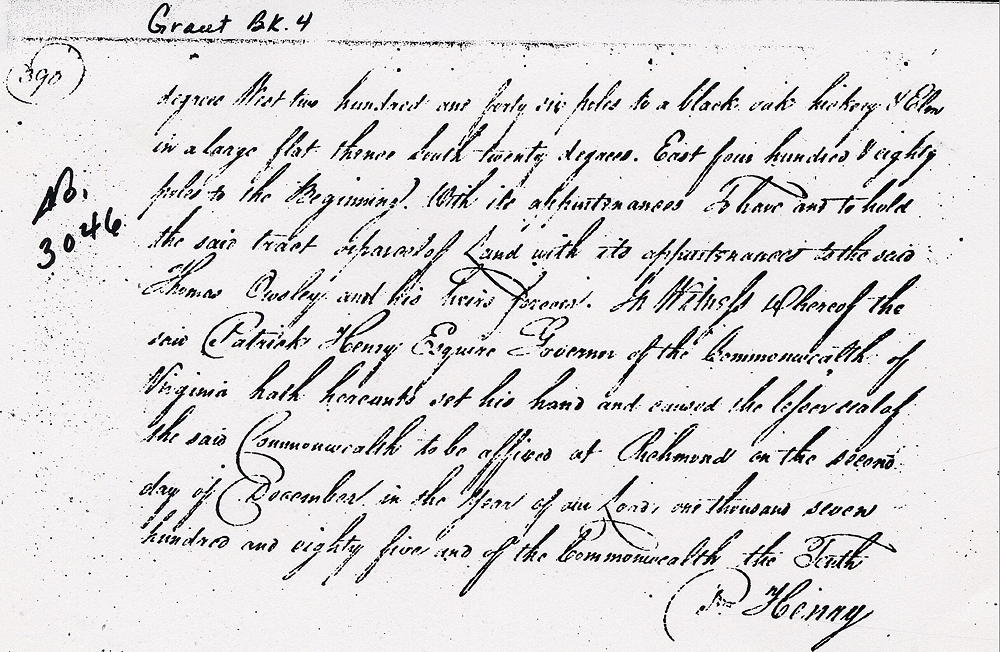 Grant Bk. 4
390
No.
3046
degrees West two hundred and forty six poles to a black oak hickory & Elm
in a large flat thence South twenty degrees. East four hundred & eighty
poles to the Beginning. With its appurtenances To have and to hold
the said tract or parcel of Land with its appurtenances to the said
Thomas Owsley and his heirs forever. In Witness Whereof the
said Patrick Henry Esquire Governor of the Commonwealth of
Virginia hath hereunto set his hand and caused the lesser seal of
the said Commonwealth to be affixed at Richmond on the second
day of December in the Year of our Lord, one thousand seven
hundred and eighty five and of the Commonwealth the Tenth
P. Henry